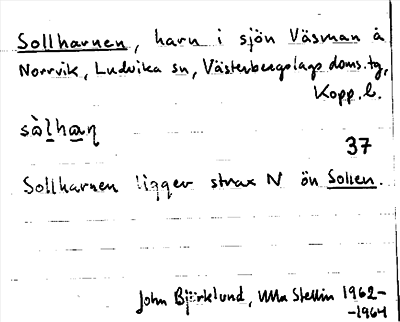 Sollharnen, harn i sjön Väsman å
Norrvik, Ludvika sn, Västerbergslags doms.tg,
Kopp.l.
sòlhan̥
37
Sollharnen ligger strax N ön Sollen.
John Björklund, Ulla Stellin 1962-
-1964